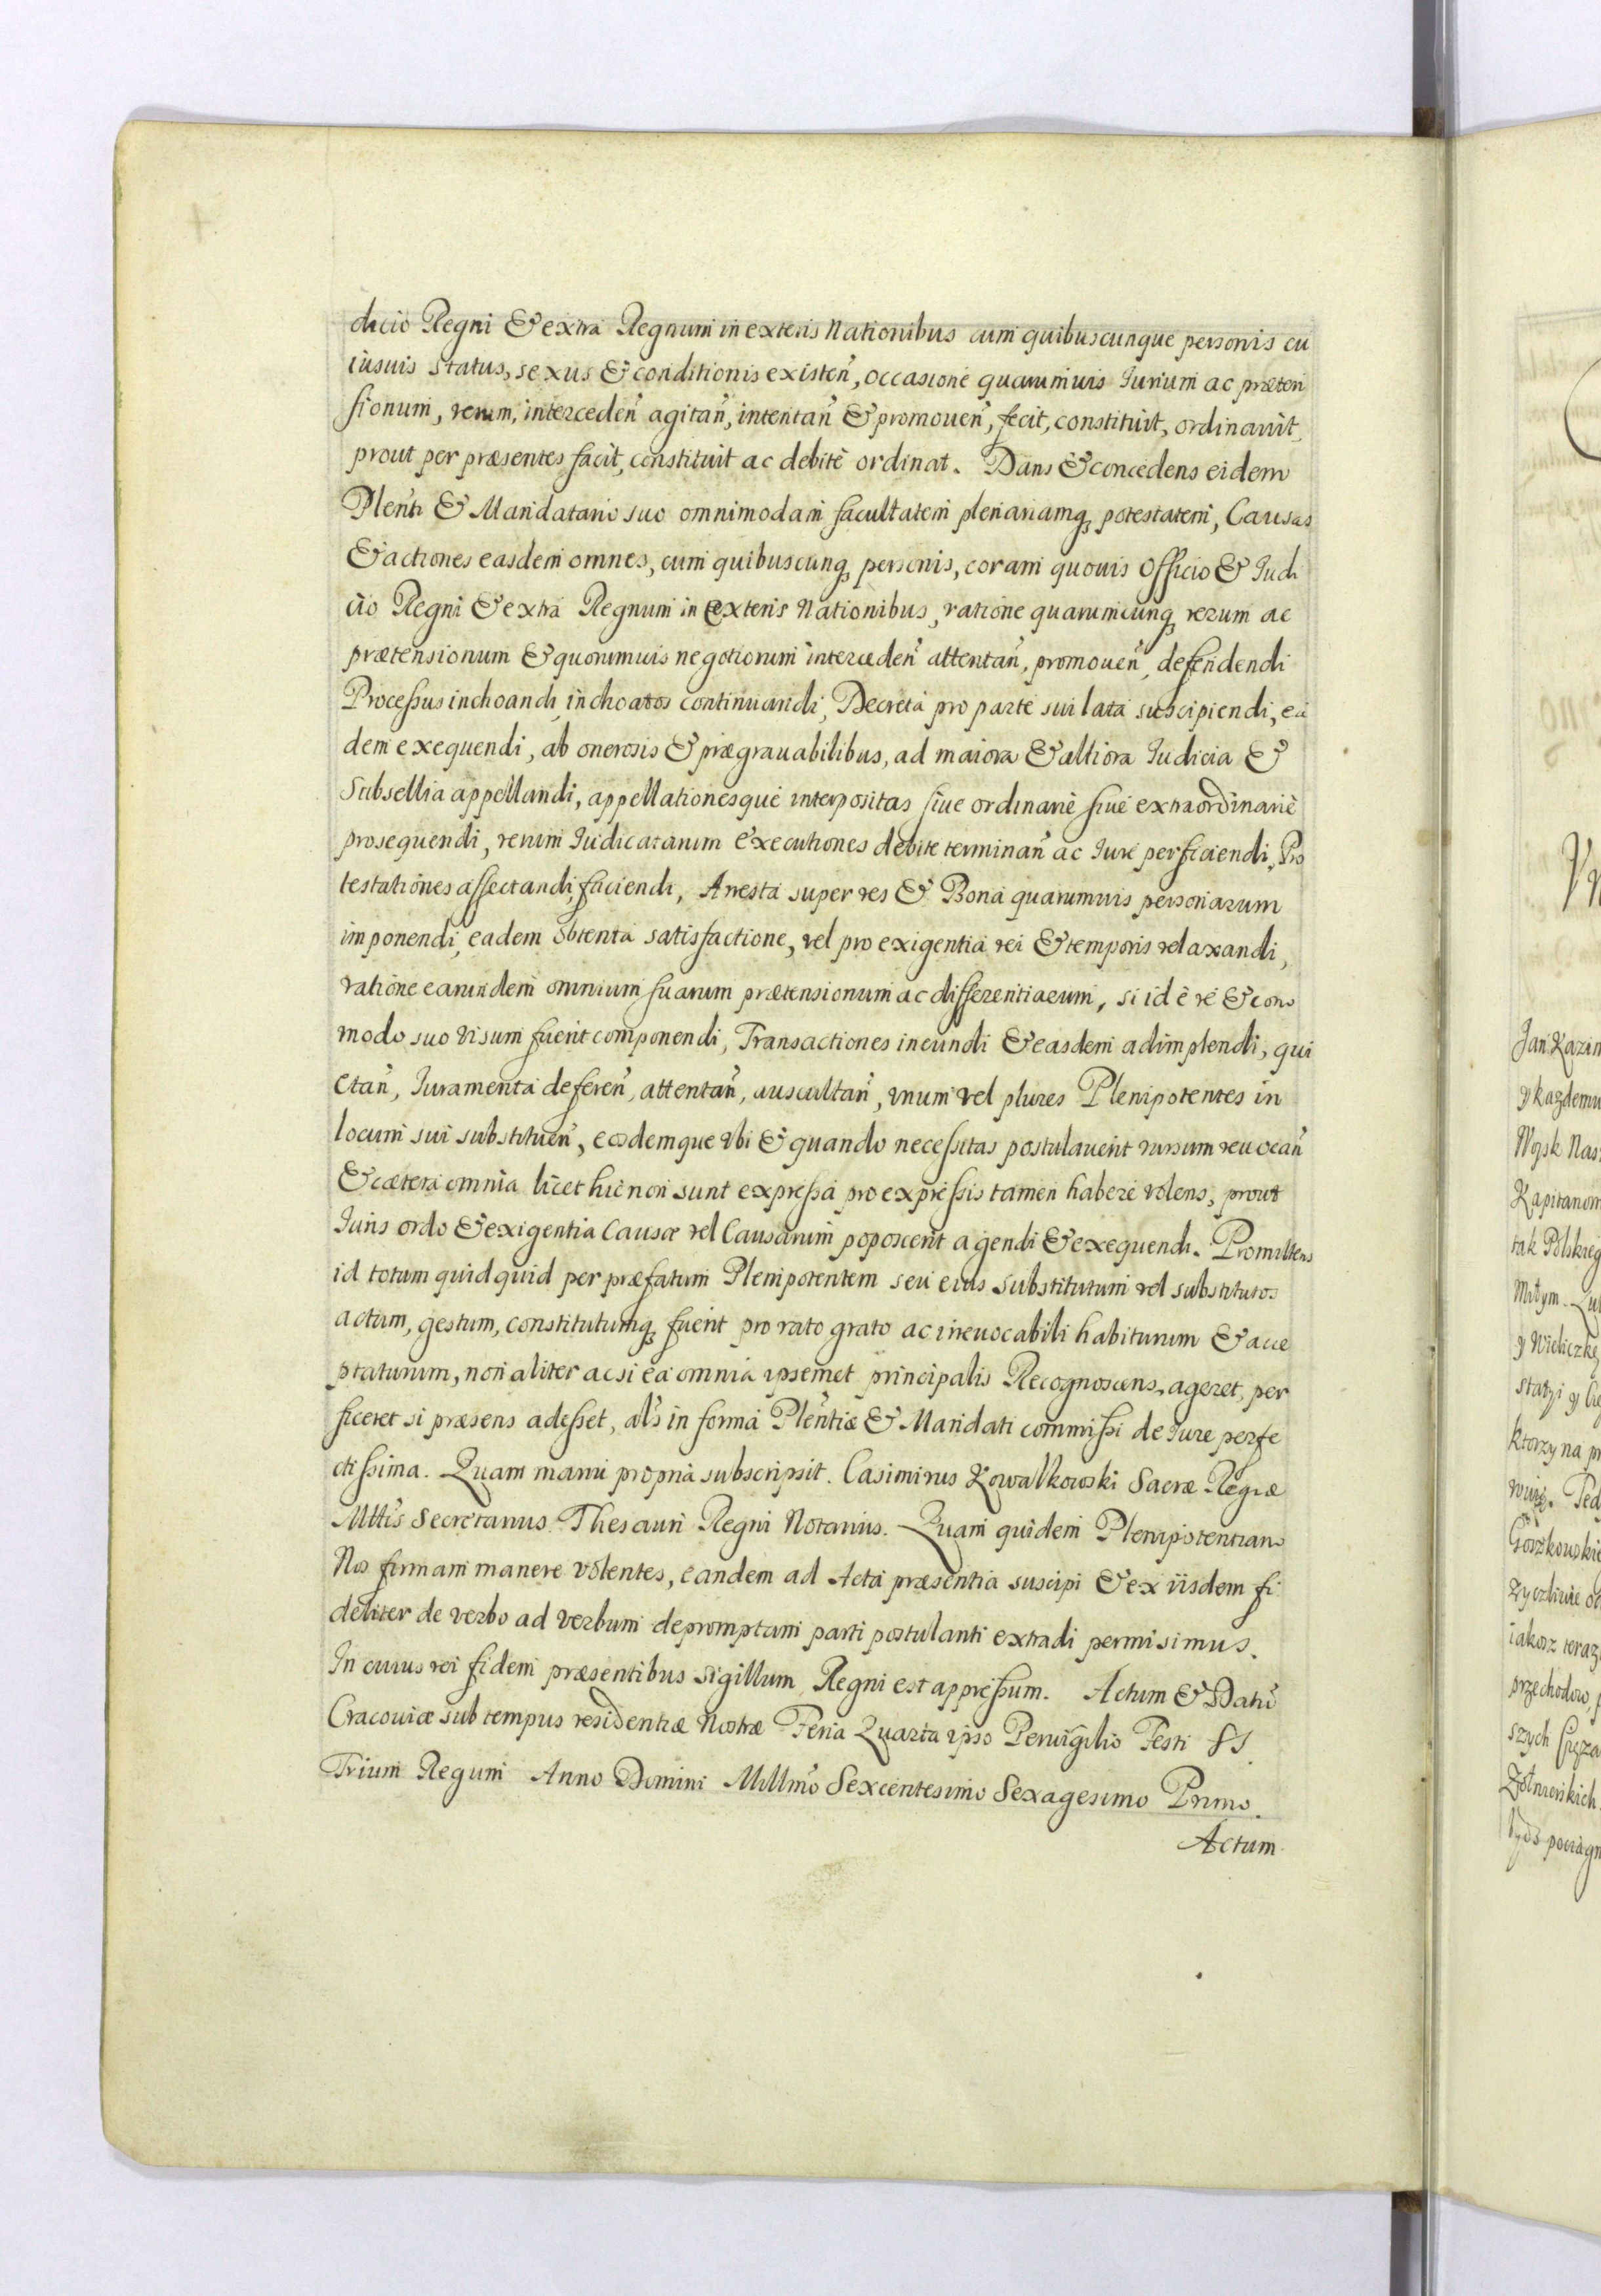 dicio Regni & extra Regnum in exteris Nationibus cum quibuscunque personis cu
iusuis status, sexus & conditionis existen̄, occasione quarumuis Iurium ac præten
sionum, rerum, interceden̄ agitan̄, intentan̄ & promouen̄, fecit, constituit, ordinauit,
prout per præsentes facit, constituit ac debitè ordinat. Dans & concedens eidem
Plen̄ti & Mandatario suo omnimodam facultatem plenariamq, potestatem, Causas
& actiones easdem omnes, cum quibuscunq, personis, coram quouis Officio & Iudi
cio Regni & extra Regnum in Exteris Nationibus, ratione quarumcunq, rerum ac
prætensionum & quorumuis negotiorum interceden̄ attentan̄, promouen̄, defendendi
Processus inchoandi, inchoatos continuandi, Decreta pro parte sui lata suscipiendi, ea
dem exequendi, ab onerosis & prægrauabilibus, ad maiora & altiora Iudicia &
Subsellia appellandi, appellationesque interpositas siue ordinariè siue extraordinariè
prosequendi, rerum Iudicatarum Executiones debite terminan̄ ac Iure perficiendi, Pro
testationes affectandi, faciendi, Arresta super res & Bona quarumuis personarum
imponendi, eadem obtenta satisfactione, vel pro exigentia rei & temporis relaxandi,
ratione earundem omnium suarum prætensionum ac differentiarum, si id è re & com
modo suo visum fuerit componendi, Transactiones ineundi & easdem adimplendi, qui
etan̄, Iuramenta deferen̄, attentan̄, auscultan̄, vnum vel plures Plenipotentes in
locum sui substituen̄, eosdemque vbi & quando necessitas postulauerit rursum reuocan̄
& cætera omnia licet hic non sunt expressa pro expressis tamen habere volens, prout
Iuris ordo & exigentia Causæ vel Causarum poposcerit agendi & exequendi. Promittens
id totum quidquid per præfatum Plenipotentem seu eius substitutum vel substitutos
actum, gestum, constitutumq, fuerit pro rato grato ac irreuocabili habiturum & acce
ptaturum, non aliter ac si ea omnia ipsemet principalis Recognoscens, ageret, per
ficeret si præsens adesset, al̄s in forma Plen̄tiæ & Mandati commissi de Iure perfe
ctissima. Quam manu propria subscripsit. Casimirus Kowalkowski Sacræ Regiæ
Mttis Secretarius Thesauri Regni Notarius. Quam quidem Plenipotentiam
Nos firmam manere volentes, eandem ad Acta præsentia suscipi & ex iisdem fi
deliter de verbo ad verbum depromptam parti postulanti extradi permisimus.
In cuius rei fidem præsentibus Sigillum Regni est appressum. Actum & Datū
Cracouiæ sub tempus residentiæ Nostræ Feria Quarta ipso Peruigilio Festi SS.
Trium Regum Anno Domini Millm̄o Sexcentesimo Sexagesimo Primo.
Actum
Jan Kazim
y kazdemu
Woysk Nas
Kapitanom
tak Polskieg
miłym.
y Wieliczkę
statyi y
ktorzy na pr
Gorzkowskie
zyczliwie
iakosz teraz
przechodow,
szych
Zołnierskich